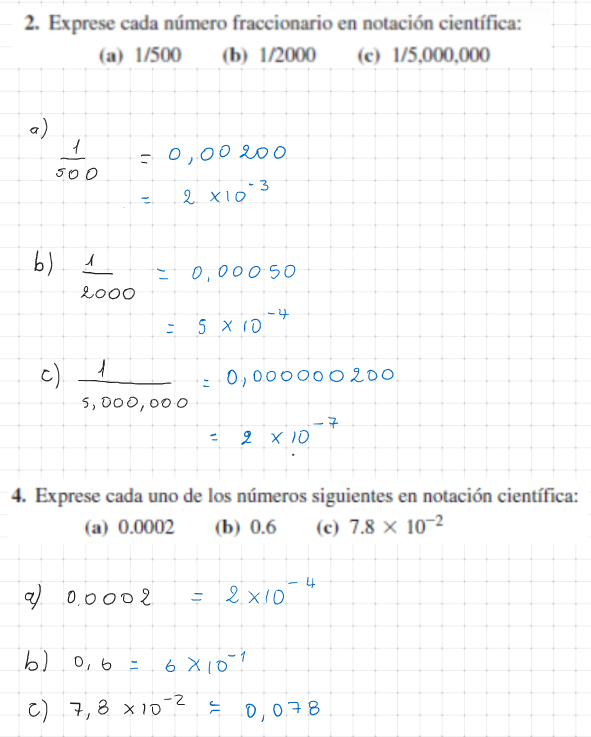 2. Exprese cada número fraccionario en notación científica:
(a) 1/500 (b) 1/2000 (c) 1/5,000,000
a) 1/500 = 0,00200
= 2 ×10⁻³
b) 1/2000 = 0,00050
= 5 × 10⁻⁴
c) 1/5,000,000 = 0,000000200
= 2 × 10⁻⁷
4. Exprese cada uno de los números siguientes en notación científica:
(a) 0.0002 (b) 0.6 (c) 7.8 × 10⁻²
a) 0.0002 = 2 ×10⁻⁴
b) 0,6 = 6 ×10⁻¹
c) 7,8 ×10⁻² = 0,078